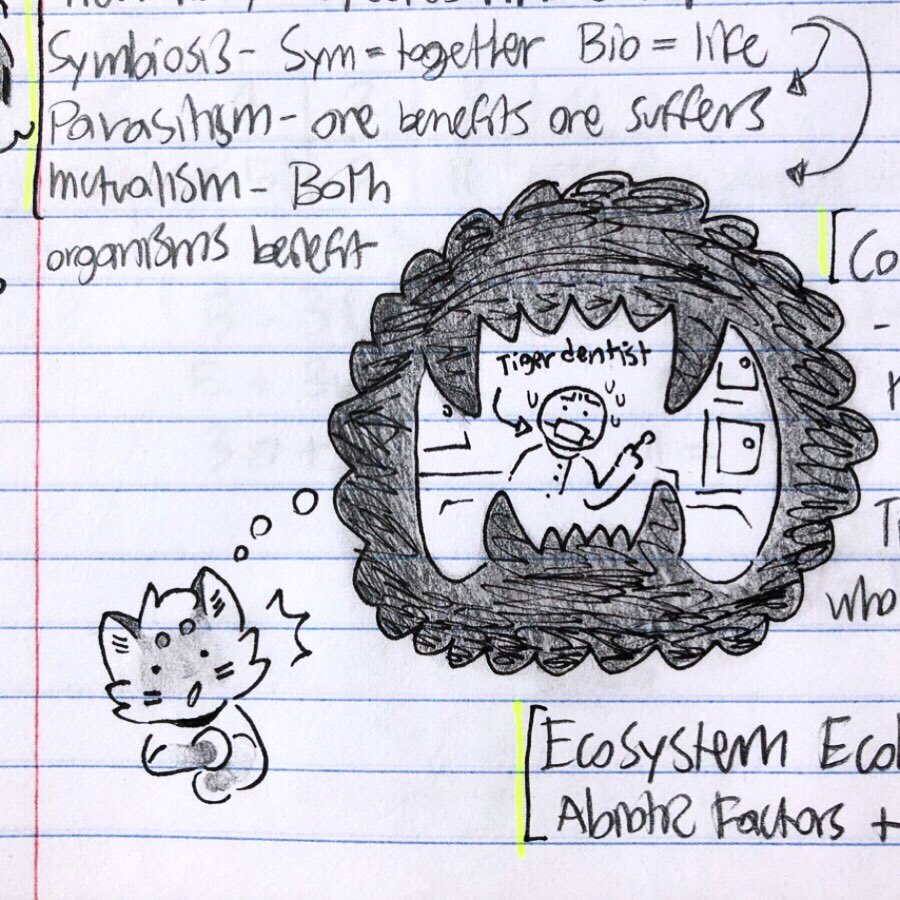 Symbiosis - Sym = together Bio = life
Parasitism - one benefits one suffers
mutualism - Both
organisms benefit
[Co
-
Tiger dentist
T
who
[Ecosystem Ecol
Abiotic Factors +